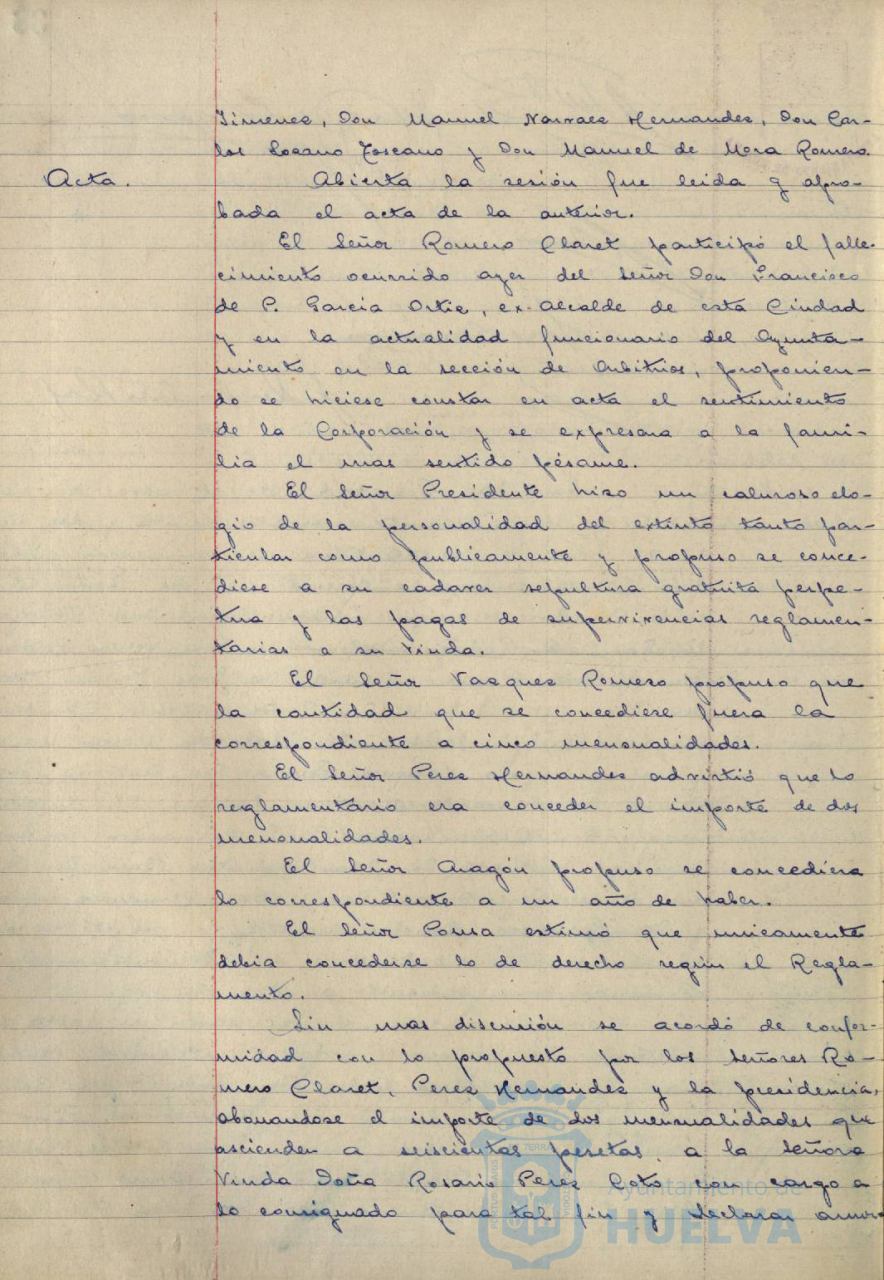 Jimenez, Don Manuel Narvaez Hernandez, Don Car-
los Lozano Toscano y Don Manuel de Mora Romero.
Acta.
Abierta la sesión fue leida y apro-
bada el acta de la anterior.
El Señor Romero Claret participó el falle-
cimiento ocurrido ayer del Señor Don Francisco
de P. Garcia Ortiz, ex-Alcalde de esta Ciudad
y en la actualidad funcionario del Ayunta-
miento en la sección de Arbitrios, proponien-
do se hiciese constar en acta el sentimiento
de la Corporación y se expresara a la fami-
lia el mas sentido pésame.
El Señor Presidente hizo un caluroso elo-
gio de la personalidad del extinto tanto par-
ticular como publicamente y propuso se conce-
diese a su cadaver sepultura gratuita perpe-
tua y las pagas de supervivencias reglamen-
tarias a su Viuda.
El Señor Vazquez Romero propuso que
la cantidad que se concediese fuera la
correspondiente a cinco mensualidades.
El Señor Perez Hernandez advirtió que lo
reglamentario era conceder el importe de dos
mensualidades.
El Señor Aragón propuso se concediera
lo correspondiente a un año de haber.
El Señor Pousa estimó que unicamente
debia concederse lo de derecho según el Regla-
mento.
Sin mas discusión se acordó de confor-
midad con lo propuesto por los Señores Ro-
mero Claret, Perez Hernandez y la presidencia,
abonandose el importe de dos mensualidades que
ascienden a seiscientas pesetas, a la Señora
Viuda Doña Rosario Perez Coto con cargo a
lo consignado para tal fin y declarar amor-
Ayuntamiento de
HUELVA